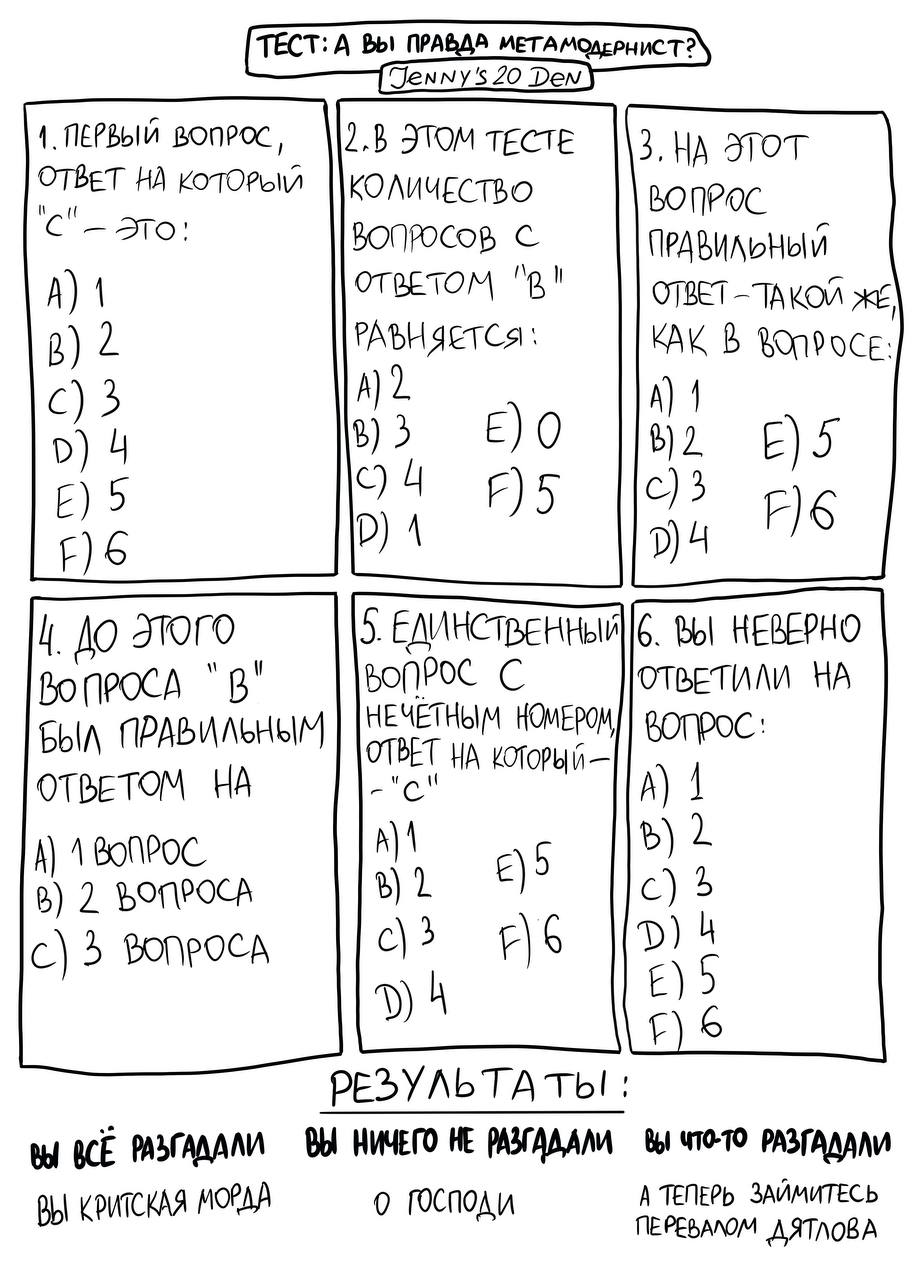 ТЕСТ: А ВЫ ПРАВДА МЕТАМОДЕРНИСТ?
JENNY'S 20 DEN
1. ПЕРВЫЙ ВОПРОС,
ОТВЕТ НА КОТОРЫЙ
"С" – ЭТО:
A) 1
B) 2
C) 3
D) 4
E) 5
F) 6
2. В ЭТОМ ТЕСТЕ
КОЛИЧЕСТВО
ВОПРОСОВ С
ОТВЕТОМ "В"
РАВНЯЕТСЯ:
A) 2
B) 3
C) 4
D) 1
E) 0
F) 5
3. НА ЭТОТ
ВОПРОС
ПРАВИЛЬНЫЙ
ОТВЕТ – ТАКОЙ ЖЕ,
КАК В ВОПРОСЕ:
A) 1
B) 2
C) 3
D) 4
E) 5
F) 6
4. ДО ЭТОГО
ВОПРОСА "В"
БЫЛ ПРАВИЛЬНЫМ
ОТВЕТОМ НА
A) 1 ВОПРОС
B) 2 ВОПРОСА
C) 3 ВОПРОСА
5. ЕДИНСТВЕННЫЙ
ВОПРОС С
НЕЧЁТНЫМ НОМЕРОМ,
ОТВЕТ НА КОТОРЫЙ –
- "С"
A) 1
B) 2
C) 3
D) 4
E) 5
F) 6
6. ВЫ НЕВЕРНО
ОТВЕТИЛИ НА
ВОПРОС:
A) 1
B) 2
C) 3
D) 4
E) 5
F) 6
РЕЗУЛЬТАТЫ:
ВЫ ВСЁ РАЗГАДАЛИ
ВЫ КРИТСКАЯ МОРДА
ВЫ НИЧЕГО НЕ РАЗГАДАЛИ
О ГОСПОДИ
ВЫ ЧТО-ТО РАЗГАДАЛИ
А ТЕПЕРЬ ЗАЙМИТЕСЬ
ПЕРЕВАЛОМ ДЯТЛОВА